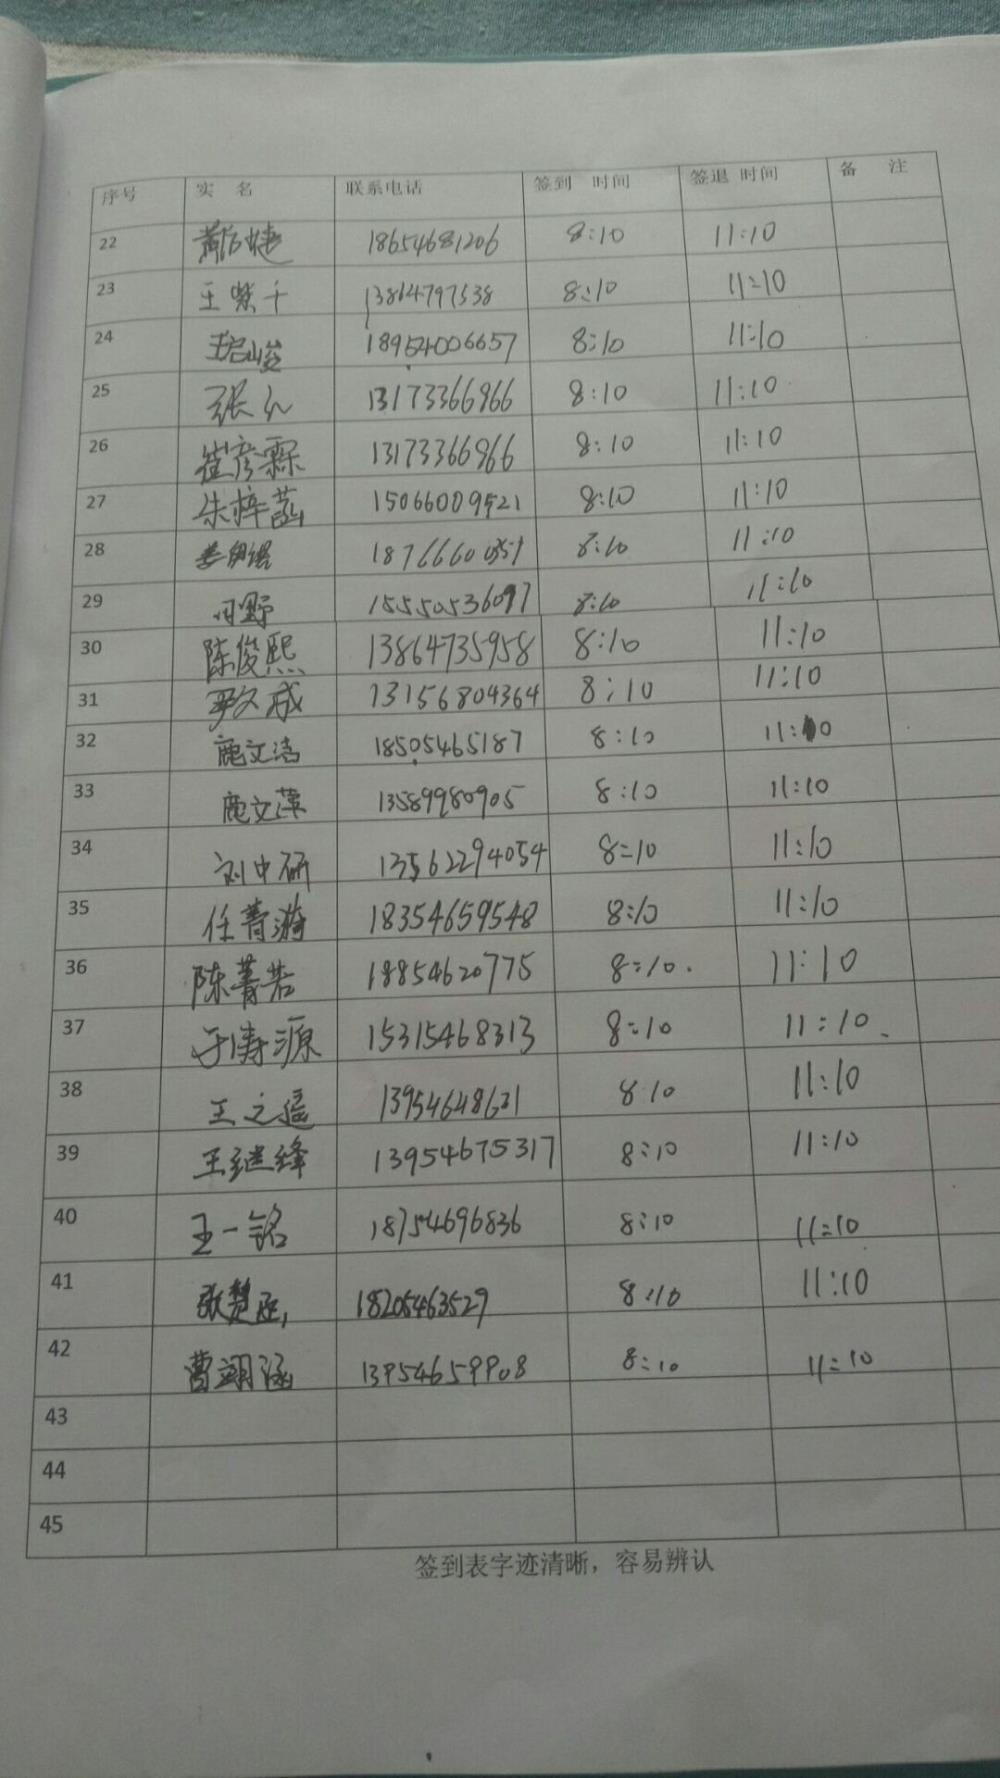 序号 实 名 联系电话 签到 时间 签退 时间 备 注
22 18654681206 8:10 11:10
23 王紫千 13864797538 8:10 11:10
24 18954006657 8:10 11:10
25 张 13173366966 8:10 11:10
26 崔彦霖 13173366966 8:10 11:10
27 朱梓菡 15066009521 8:10 11:10
28 8:10 11:10
29 田野 15550536097 8:10 11:10
30 陈俊熙 13864735958 8:10 11:10
31 13156804364 8:10 11:10
32 鹿文洁 18505465187 8:10 11:10
33 鹿文萍 13589980905 8:10 11:10
34 刘中研 13562294054 8:10 11:10
35 任菁漪 18354659548 8:10 11:10
36 陈菁若 18854620775 8:10. 11:10
37 于涛源 15315468313 8:10 11:10.
38 王之遥 13954648631 8:10 11:10
39 王继绛 13954675317 8:10 11:10
40 王一铭 18754696836 8:10 11:10
41 张楚 18205463529 8:10 11:10
42 曹翊涵 13954659908 8:10 11:10
43
44
45
签到表字迹清晰，容易辨认